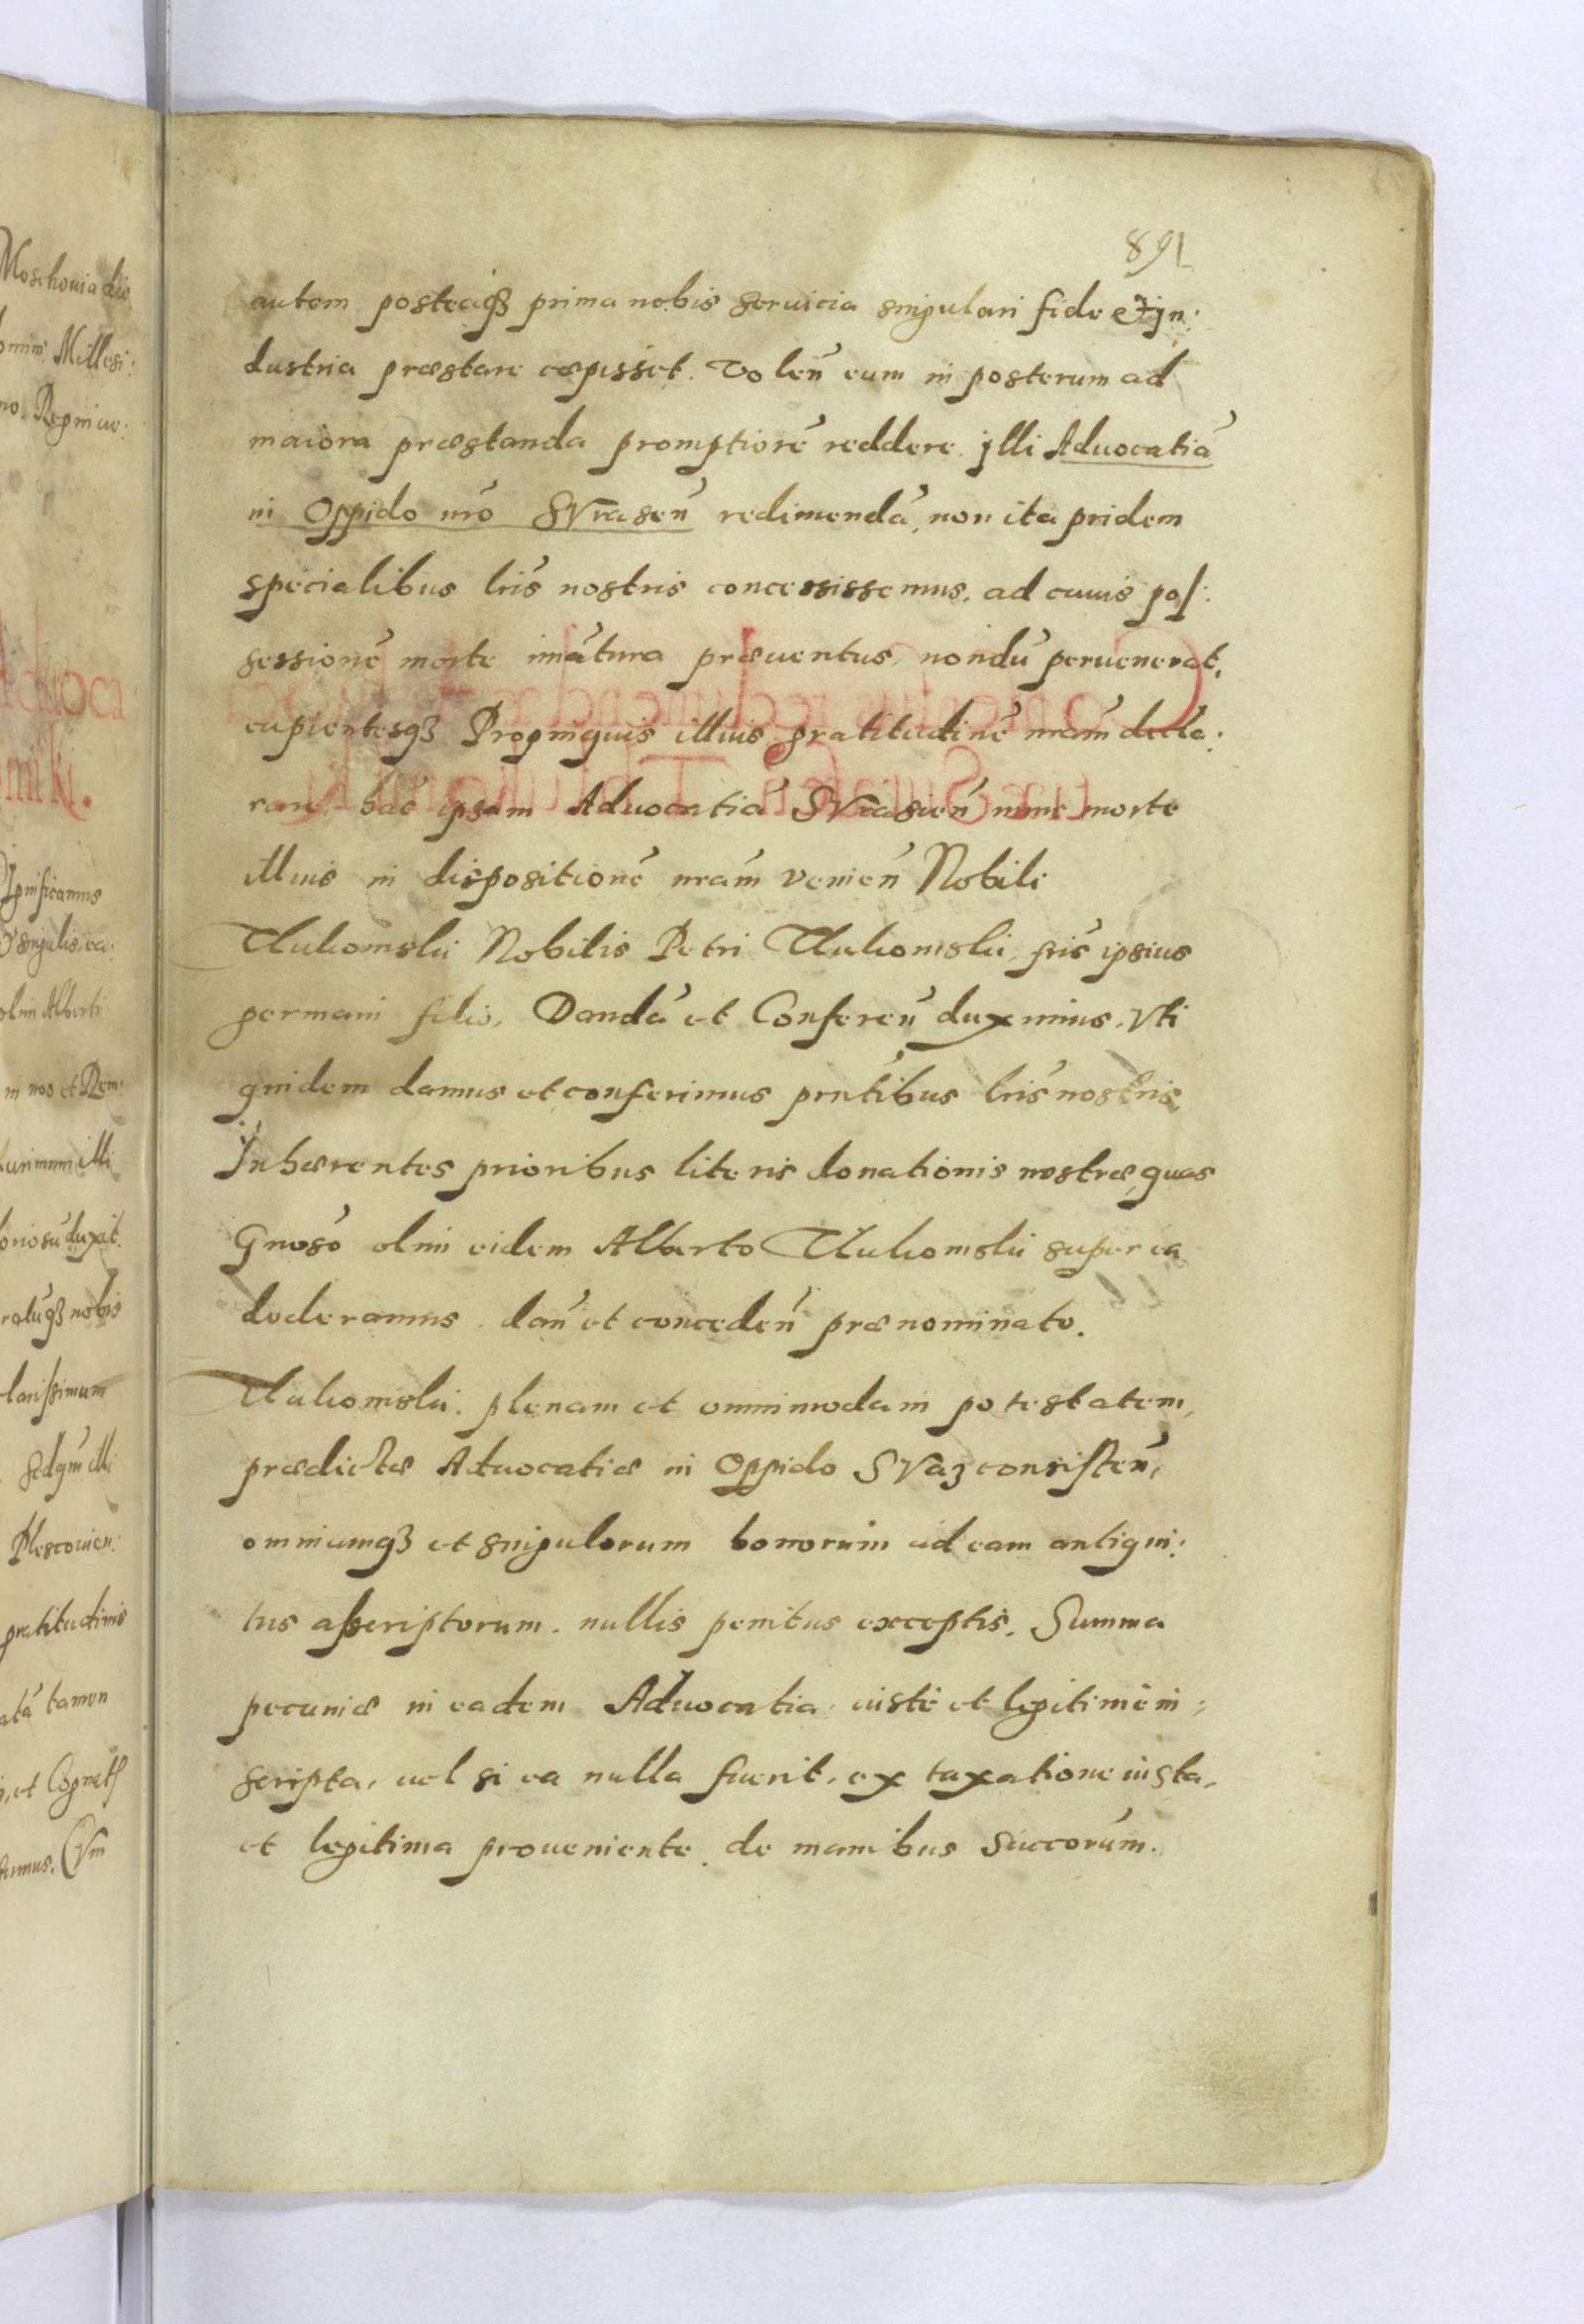 891
autem posteaq3 prima nobis seruicia singulari fide et jn:
dustria præstare cæpisset. Volen̄ eum in posterum ad
maiora præstanda promptiorē reddere jlli Aduocatiā
in Oppido nrō SVrasen̄ redimendā, non ita pridem
specialibus lris nostris concessissemus, ad cuius pos:
sessionē morte im̄atura præuentus, nondū peruenerat,
cupientesq3 Propinquis illius gratitudinē nram̄ decla:
rare, hac ipsam Aduocatiā SVrasien̄ nunc morte
illius in dispositionē nram̄ venien̄ Nobili
Tlukomski Nobilis Petri Tlukomski, fris ipsius
germani filio, Dandā et Conferen̄ duximus, Vti
quidem damus et conferimus prntibus lris nostris,
Inhærentes prioribus literis donationis nostræ, quas
Gnoso olim eidem Alberto Tlukomski super ea
dederamus. dan̄ et conceden̄ prænominato.
Tlukomski. plenam et omnimodam potestatem,
prædictæ Aduocatiæ in Oppido SVraz consisten̄,
omniumq3 et singulorum bonorum ad eam antiqui:
tus asscriptorum. nullis penitus exceptis. Summa
pecuniæ in eadem Aduocatia iustè et legitimè in:
scripta, uel si ea nulla fuerit, ex taxatione iusta,
et legitima proueniente. de manibus Succorum.